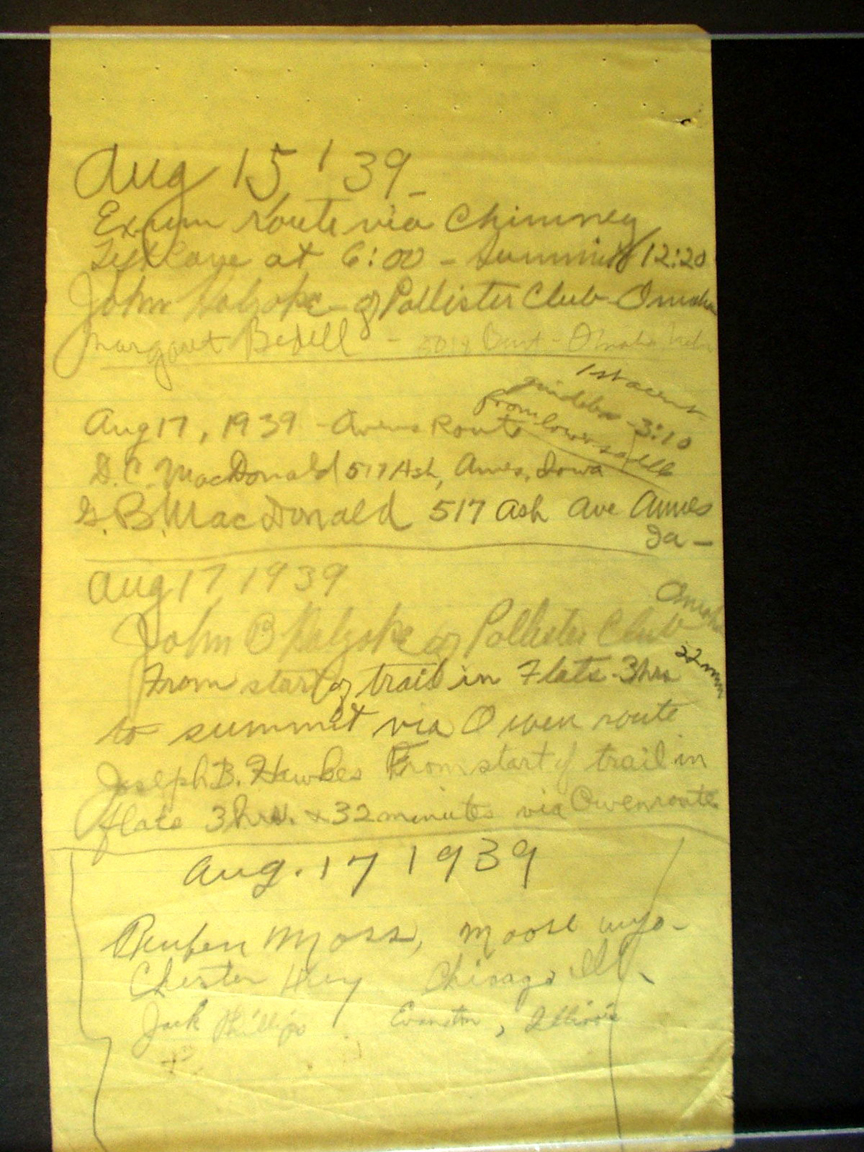 Aug 15 '39
Exum route via Chimney
Left Cave at 6:00 - Summit 12:20
John Holyoke - of Pollister Club - Omaha
Margaret Bedell - Burt - Omaha Nebr
1st ascent
guideless 3:10
from lower saddle
Aug 17, 1939 - Owens Route
D.C. MacDonald 517 Ash, Ames, Iowa
G.B. MacDonald 517 Ash Ave Ames
Ia -
Aug 17 1939
John B Holyoke of Pollister Club Omaha
From start of trail in Flats 3 hrs 22 min
to summit via Owen route
Joseph B. Hawkes From start of trail in
flats 3 hrs. + 32 minutes via Owen route
Aug. 17 1939
Reuben Moss, Moose Wyo-
Chester Chicago Ill.
Jack Phillips Evanston, Illinois